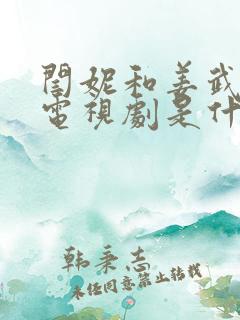 閆妮和姜武
電視劇是什
韓秉志
未經同意禁止轉載